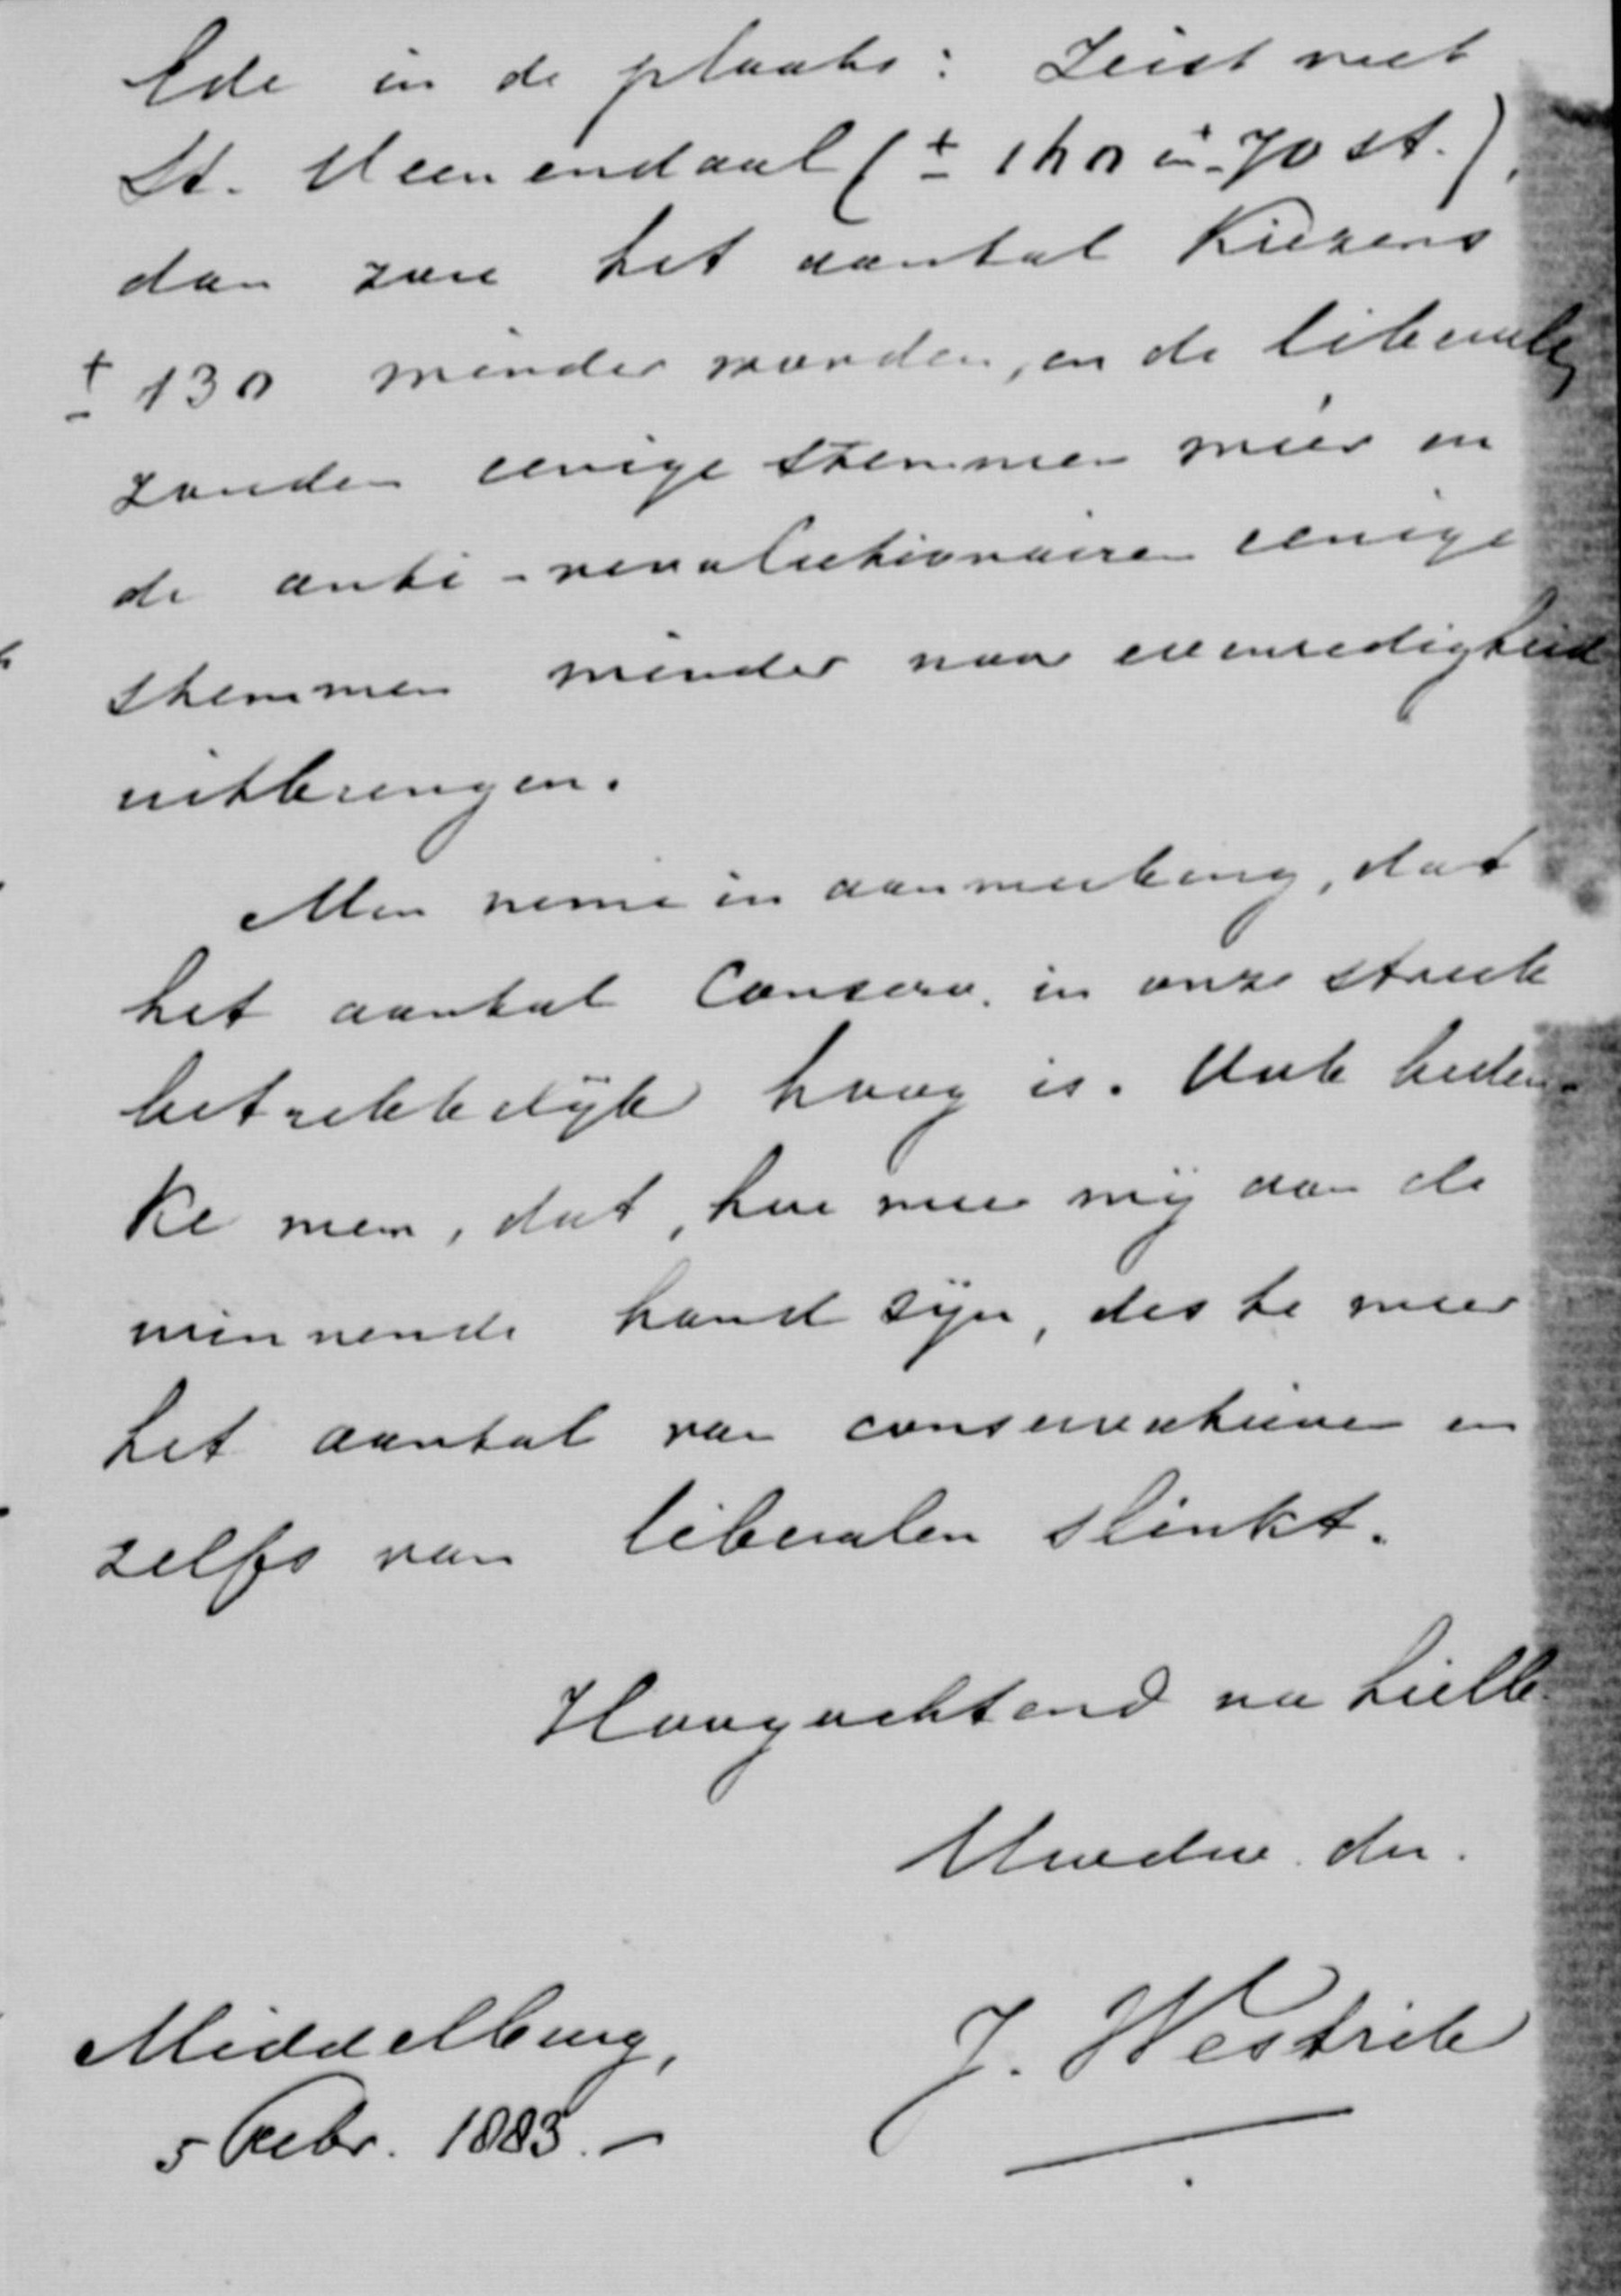 Ede in de plaats: Zeist met
St. Veenendaal (± 160 à 70 st.),
dan zou het aantal Kiezers
± 130 minder worden, en de liberale
zouden eenige stemmen meer en
de anti-revolutionairen eenige
stemmen minder naar evenredigheid
uitbrengen.
Men neme in aanmerking, dat
het aantal Conserv. in onze streek
betrekkelijk hoog is. Ook beden-
ke men, dat, hoe meer wij aan de
winnende hand zijn, des te meer
het aantal van conservatieven en
zelfs van liberalen slinkt.
Hoogachtend en heilb.
Uwedw. dr.
J. Westrik
Middelburg,
5 Febr. 1883.-